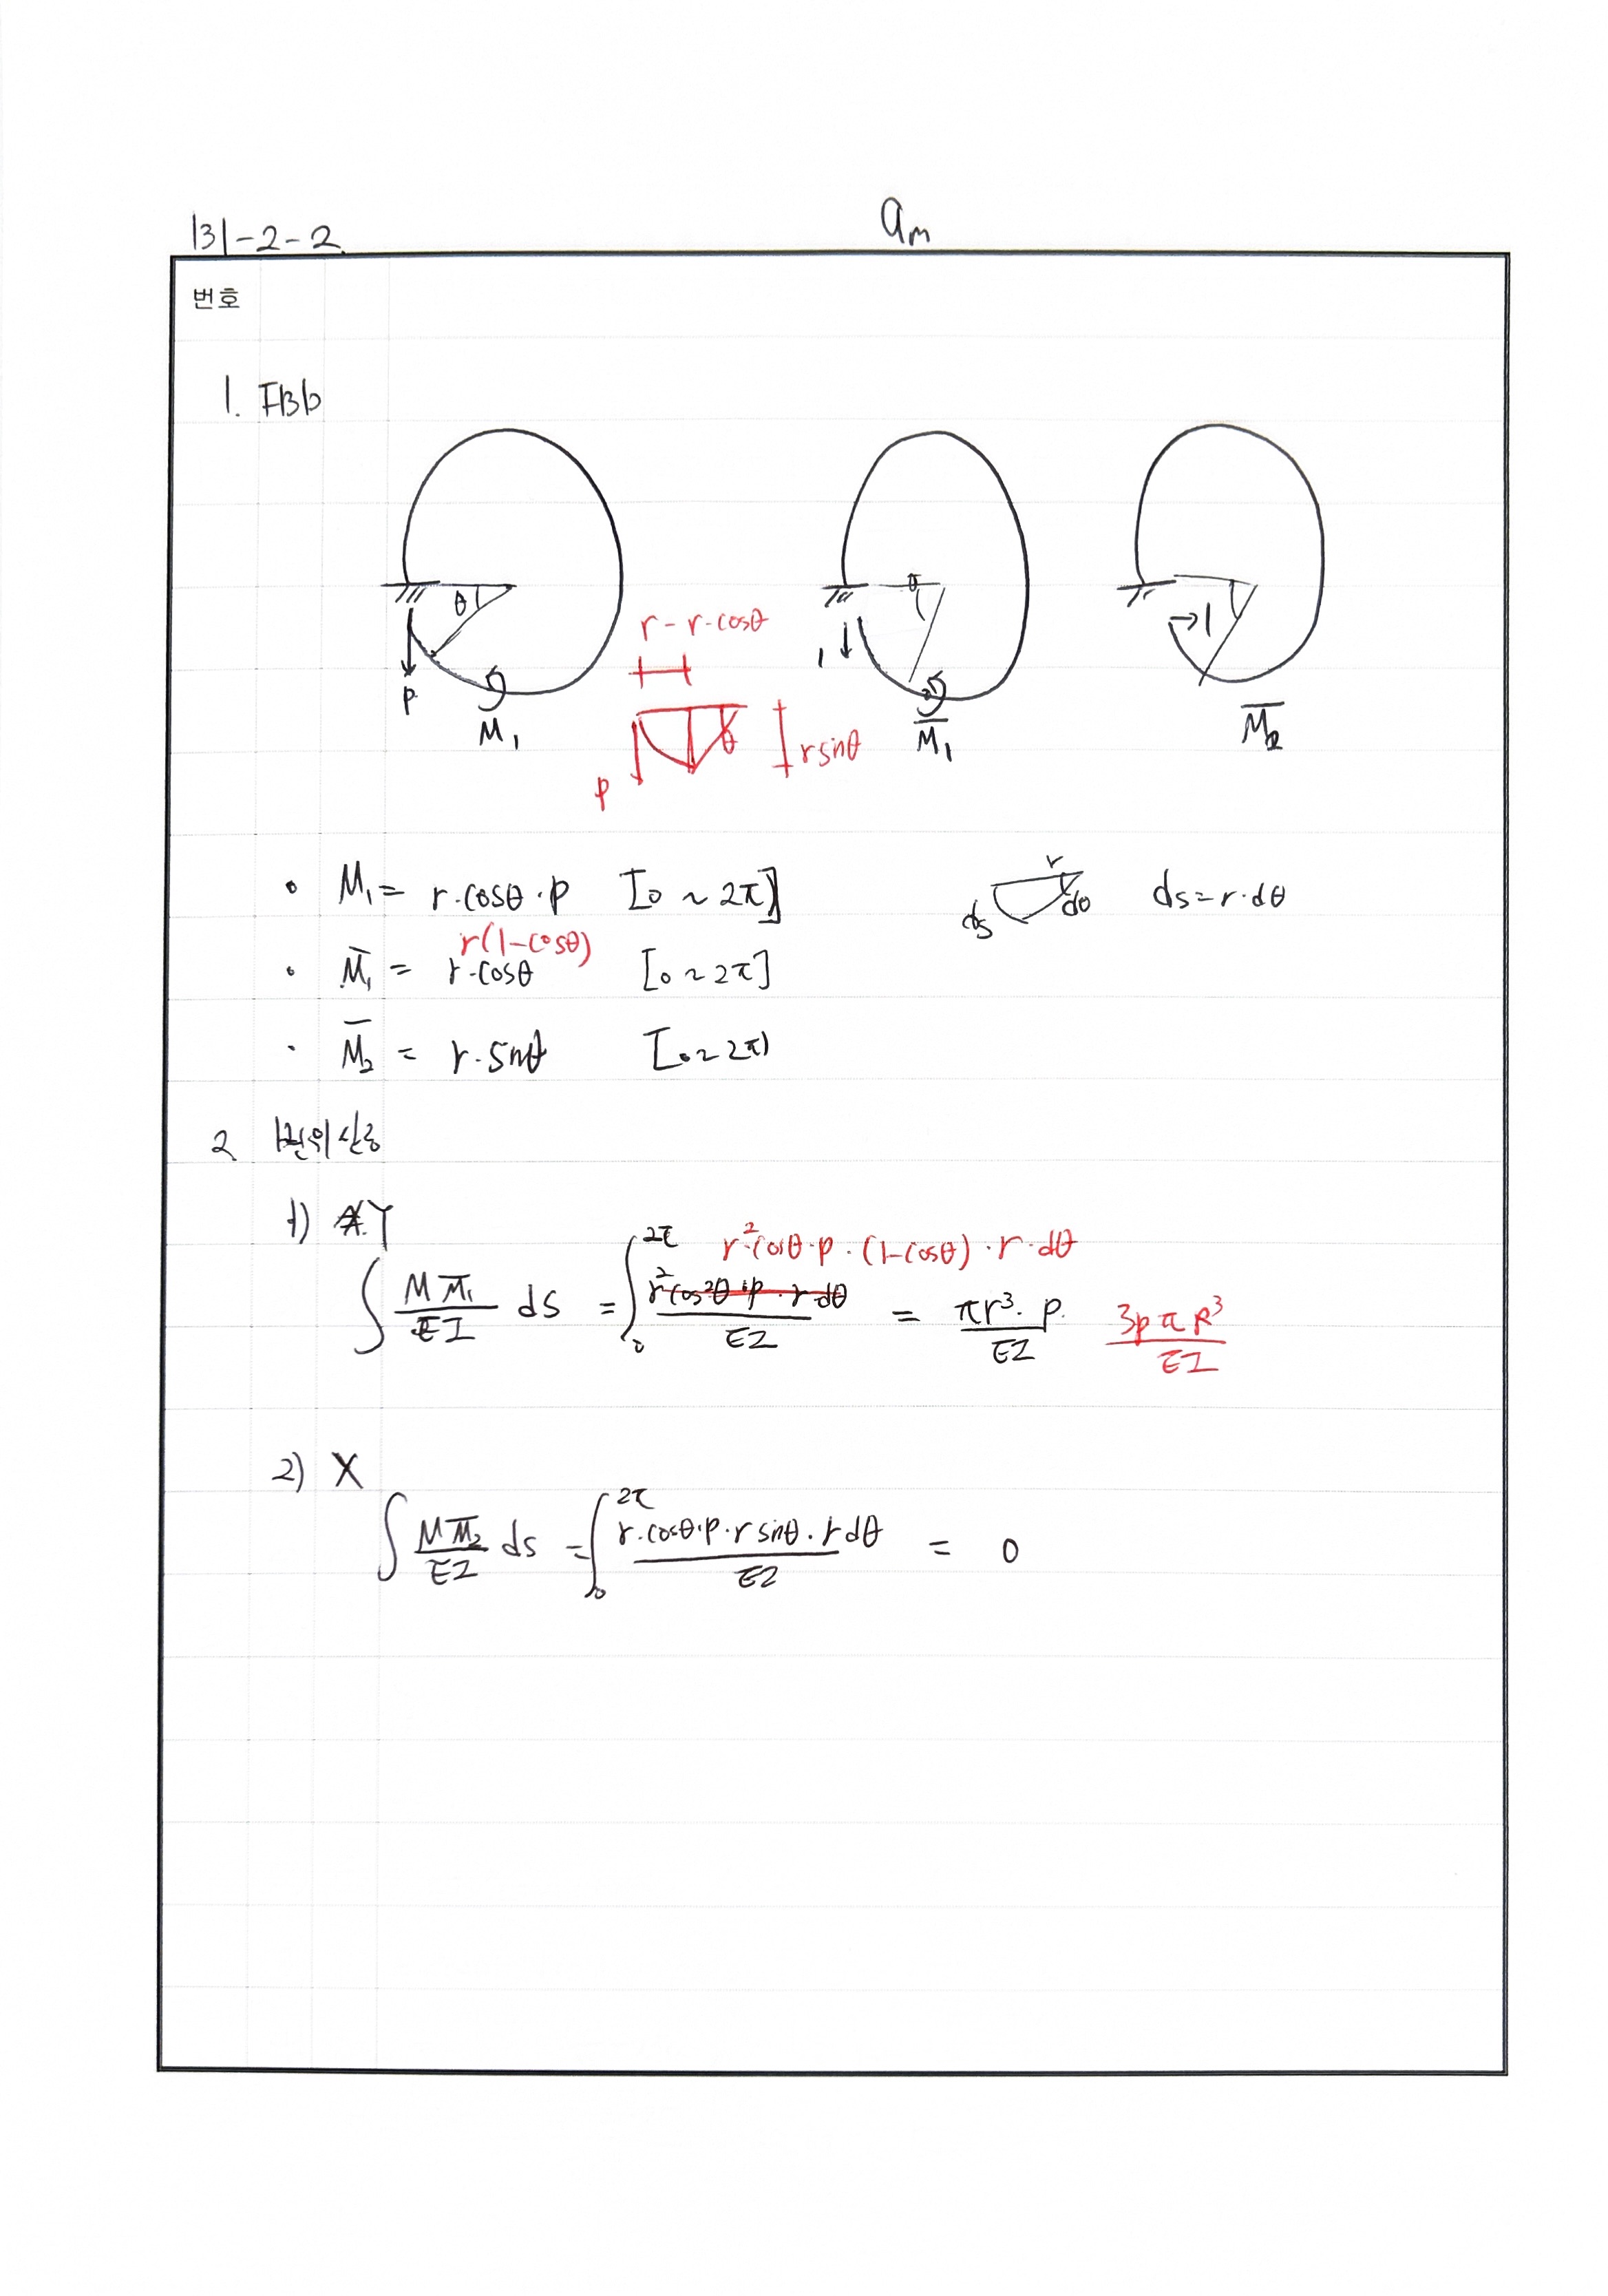 131-2-2.
am
번호
1. FBD
θ
P
M₁
r - r·cosθ
θ
r sinθ
P
θ
1
M̄₁
→1
M̄₂
• M₁ = r·cosθ·P [0 ~ 2π]
r
ds
dθ
ds = r·dθ
r(1-cosθ)
• M̄₁ = r·cosθ [0 ~ 2π]
· M̄₂ = r·sinθ [0 ~ 2π)
2 변위산정
1) Y
∫ M M̄₁ / EI ds = ∫₀^2π r²cos²θ·P·r·dθ / EI = πr³·P / EI
r²cosθ·P·(1-cosθ)·r·dθ
3PπR³ / EI
2) X
∫ M M̄₂ / EI ds = ∫₀^2π r·cosθ·P·r sinθ·r dθ / EI = 0